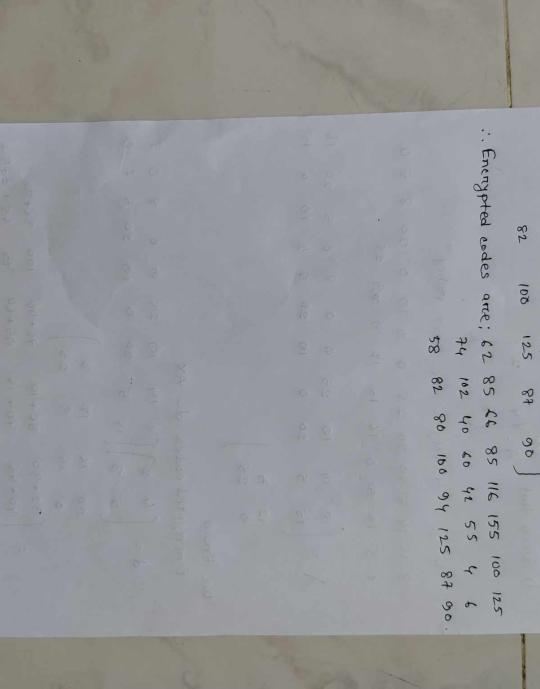 82 100 125 87 90]
∴ Encrypted codes are; 62 85 66 85 116 155 100 125
74 102 40 60 42 55 4 6
58 82 80 100 94 125 87 90.